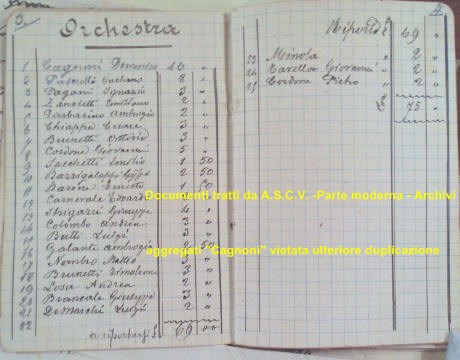 2
Orchestra
1 Cagnoni Domenico 10 "
2 Gaetano 8 "
3 Pagani Ignazio 3 "
4 Zanoletti Emiliano 2 "
5 Barbarino Ambrogio 2 "
6 Chiappa Cesare 3 "
7 Brunetti Ottorino 3 "
8 Cordone Giovanni 5 "
9 Sacchetti 1 50
10 Barrigalupi Gius. 2 50
11 Barone Ernesto 1 50
12 Carnevale Edoardo
13 Giuseppe 4 "
14 Colimbo Andrea 3 "
15 Butti Luigi 3 "
16 Galante Ambrogio 2 50
17 Nembro Matteo 3 "
18 Brunetti Simoleone 3 "
19 Losa Andrea 2 "
20 Brancale Giuseppe 3 "
21 DeMarchi Luigi 2 "
22
a riportarsi £ 69 00
4
Riporto £ 69 "
23 Minola 2 "
24 Cavellar Giovanni 2 "
25 Cordone Pietro 2 "
£ 75 "
Documenti tratti da A.S.C.V. -Parte moderna - Archivi
aggregati "Cagnoni" vietata ulteriore duplicazione